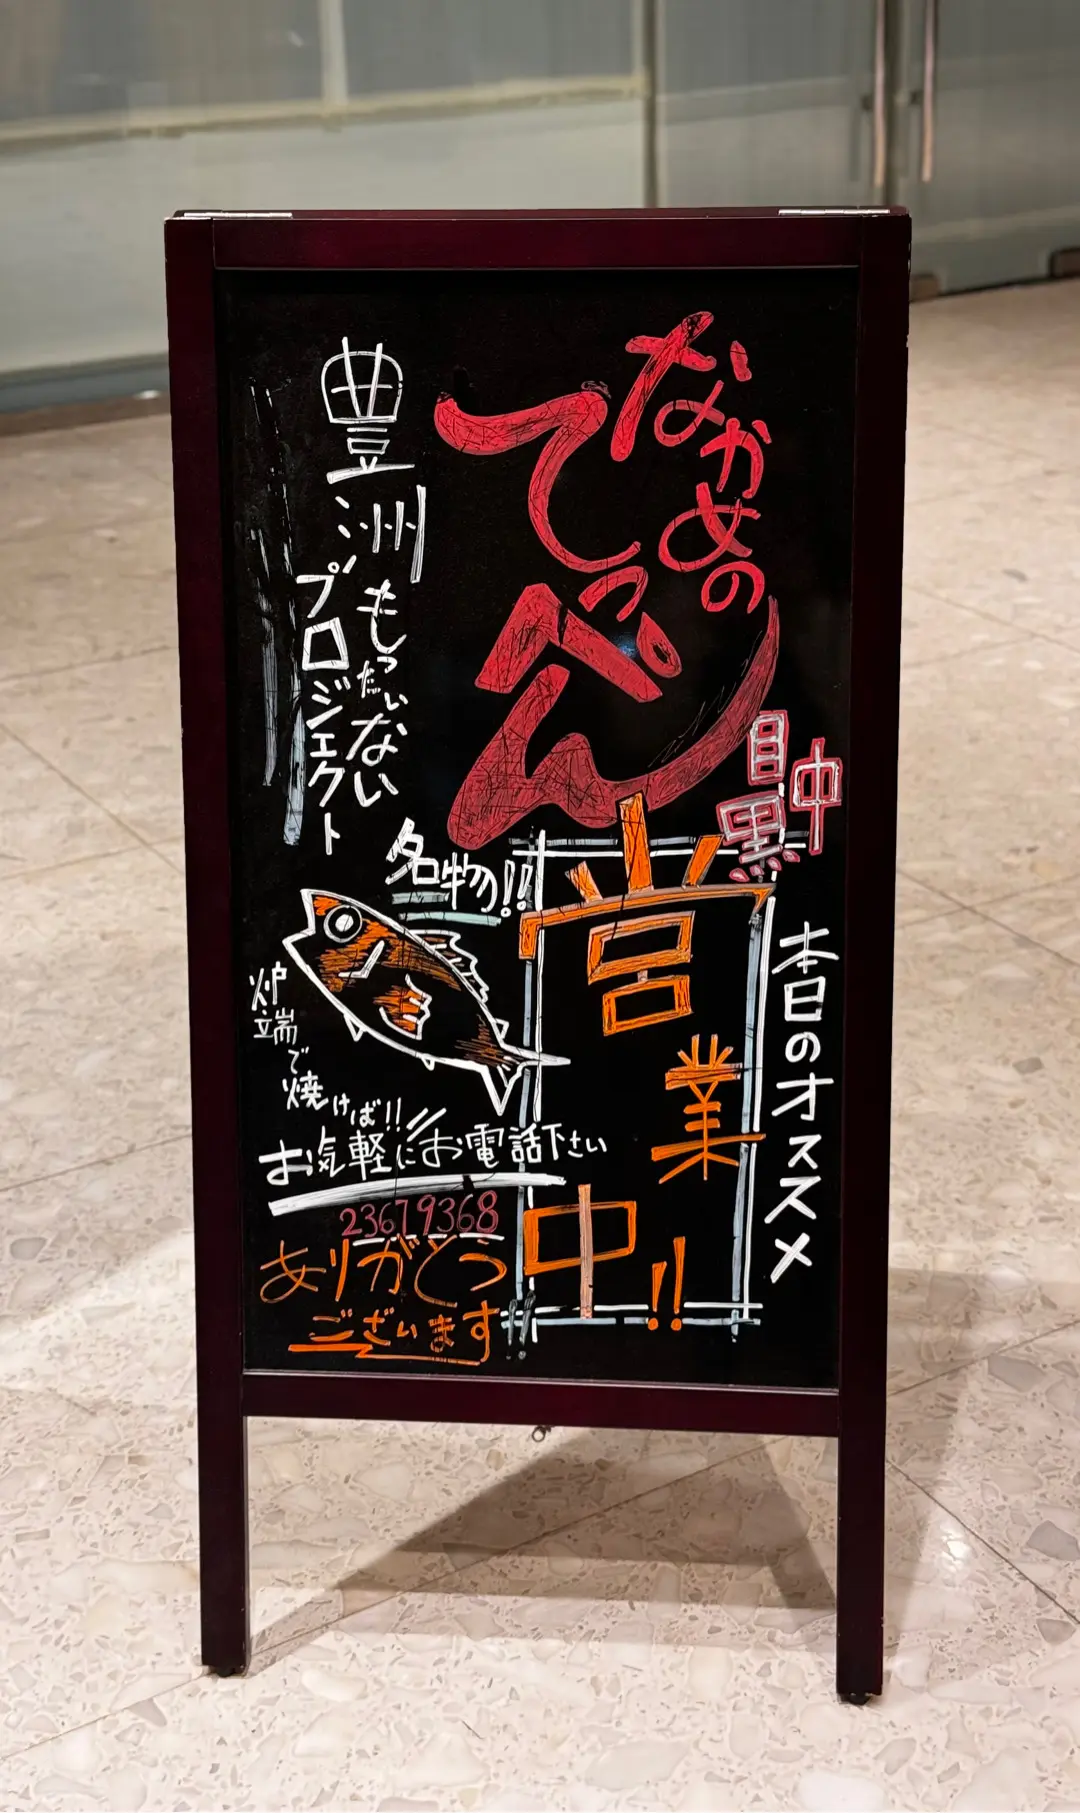 なかめの
てっぺん
中
目黒
営業中!!
本日のオススメ
豊洲
もったいない
プロジェクト
名物の!!
炉端で焼けば!!
お気軽にお電話下さい
23679368
ありがとう
ございます!!